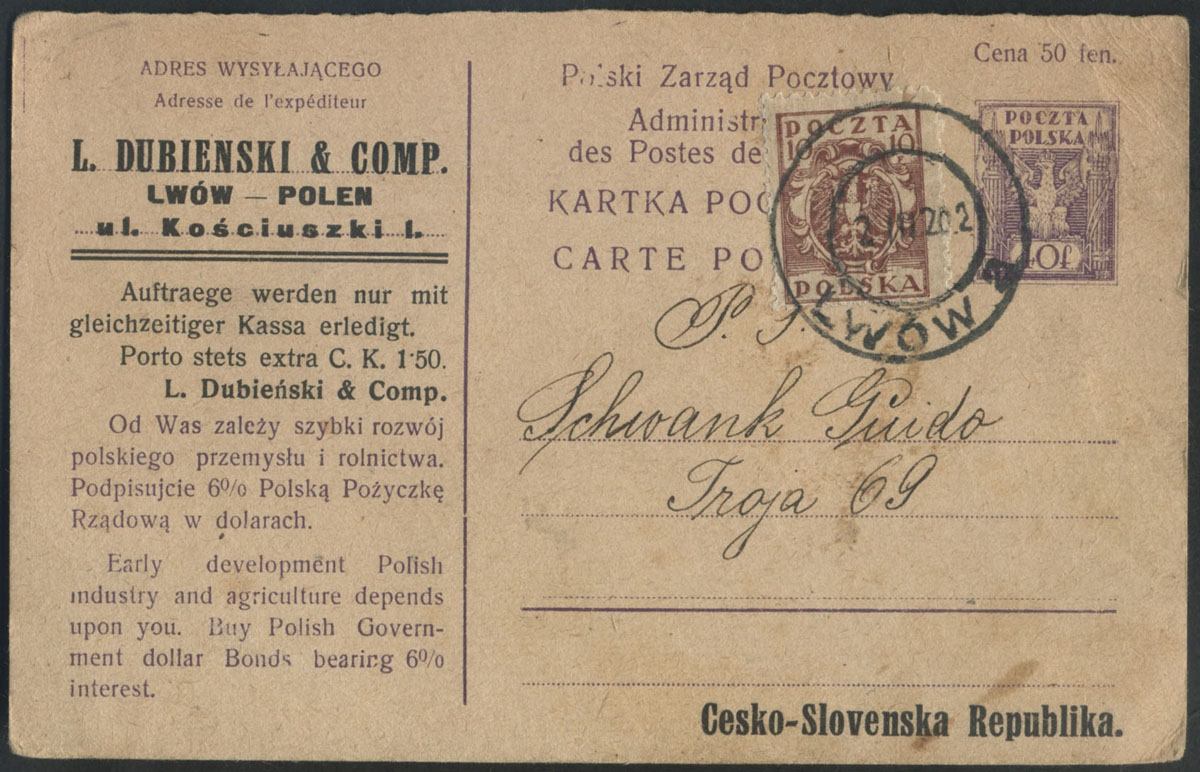 ADRES WYSYŁAJĄCEGO
Adresse de l'expéditeur
L. DUBIENSKI & COMP.
LWÓW — POLEN
ul. Kościuszki I.
Auftraege werden nur mit
gleichzeitiger Kassa erledigt.
Porto stets extra C. K. 1·50.
L. Dubieński & Comp.
Od Was zależy szybki rozwój
polskiego przemysłu i rolnictwa.
Podpisujcie 6% Polską Pożyczkę
Rządową w dolarach.
Early development Polish
industry and agriculture depends
upon you. Buy Polish Govern-
ment dollar Bonds bearing 6%
interest.
Cena 50 fen.
Polski Zarząd Pocztowy
Administr
des Postes de
KARTKA POC
CARTE PO
POCZTA
10 10
POLSKA
LWÓW 2
POCZTA
POLSKA
40f
P. T.
Schwank Guido
Troja 69
Cesko-Slovenska Republika.